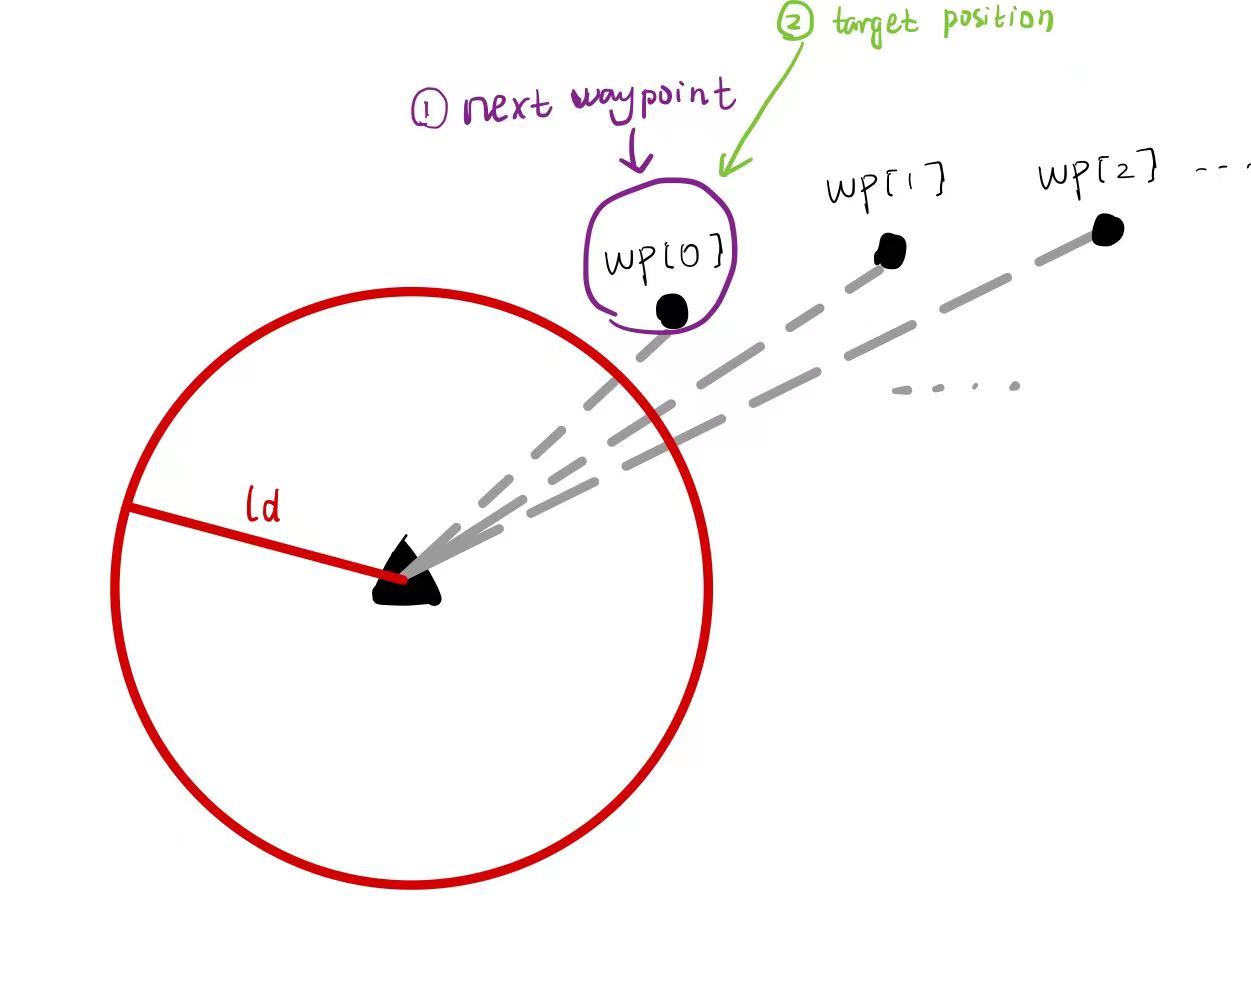 ② target position
① next waypoint
wp[0]
wp[1]
wp[2] ----
ld